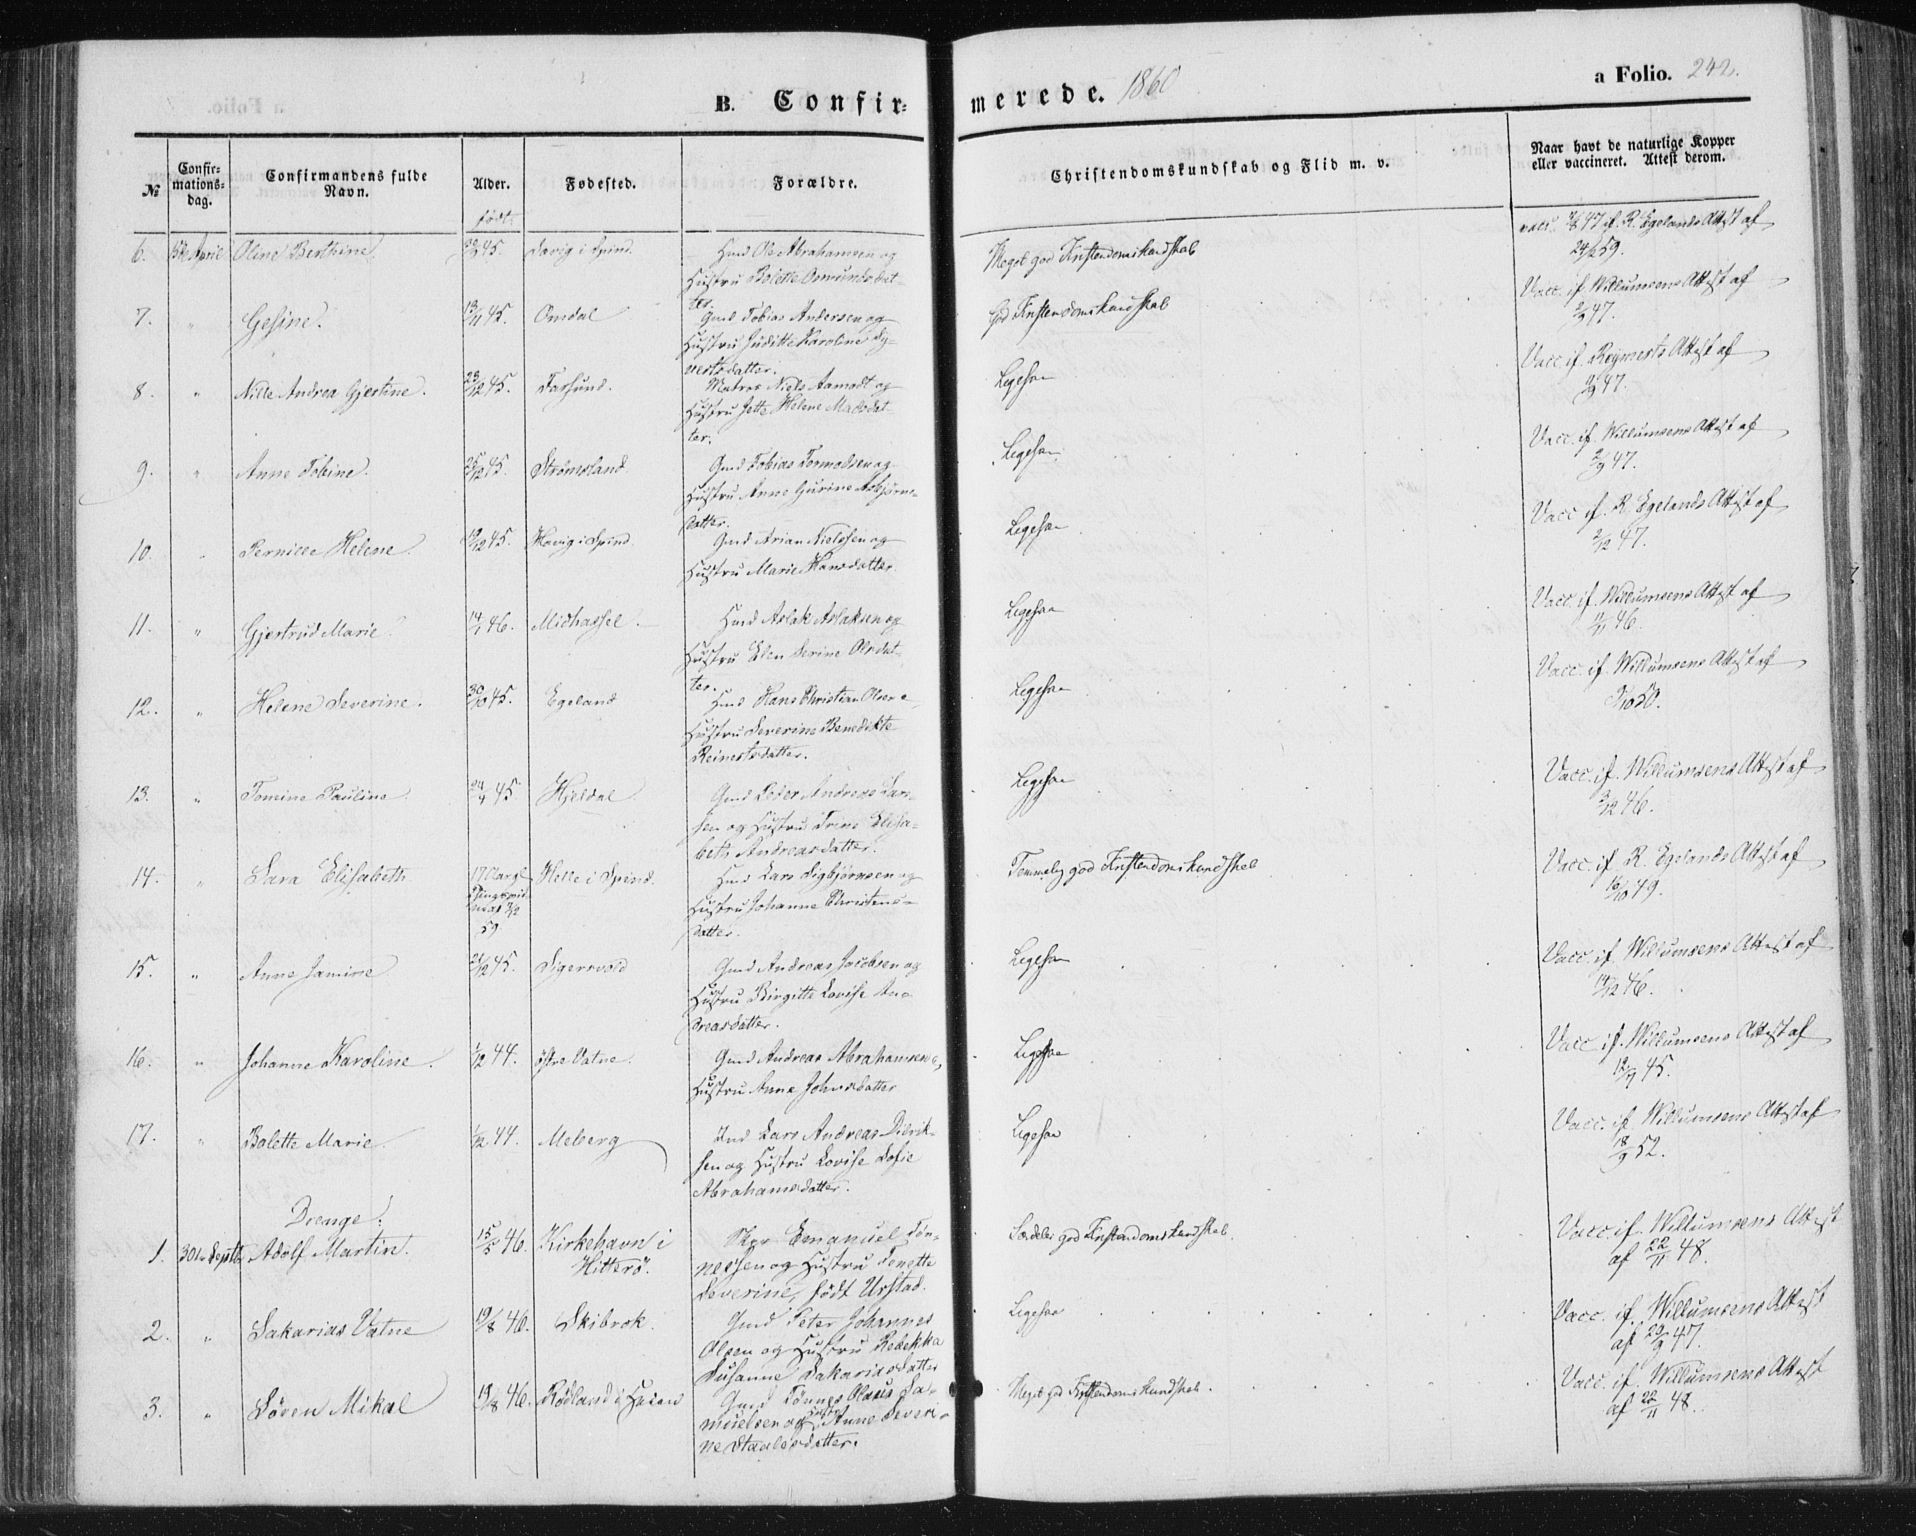 B. Confir-
merede. 1860
a Folio. 242.
№
Confir-
mations-
dag.
Confirmandens fulde
Navn.
Alder.
født
Fødested.
Forældre.
Christendomskundskab og Flid m. v.
Naar havt de naturlige Kopper
eller vaccineret. Attest derom.
6. April Oline Berthine 45. i Spind. Hmd Ole Abrahamsen og
Hustru Bolette Osmundsdat-
ter.
Meget god Kristendomskundskab
vacc. 47 if. R. Egelands Attest af
59.
7. " Gesine. 13/11 45. Omdal Gmd Tobias Andersen og
Hustru Juditte Karoline Sy-
vertsdatter.
God Kristendomskundskab
Vacc. if. Willumsens Attest af
2/9 47.
8. " Nille Andrea Gjertine. 23/12 45. Farsund. Matros Niels Aamodt og
Hustru Jette Helene Madsdat-
ter.
Ligesaa
Vacc. if. Reymerts Attest af
2/9 47.
9. " Anne Tobine. 25/12 45. Strømsland. Gmd Tobias Tormodsen og
Hustru Anne Gurine Asbjørns-
datter.
Ligesaa
Vacc. if. Willumsens Attest af
2/9 47.
10. " Pernille Helene. 19/12 45. i Spind Gmd Arian Nielssen og
Hustru Marie Hansdatter
Ligesaa
Vacc. if. R. Egelands Attest af
2/12 47.
11. " Gjertrud Marie. 14/1 46. Midhassel. Hmd Aslak Aslaksen og
Hustru Elen Serine Olsdat-
ter.
Ligesaa
Vacc. if. Willumsens Attest af
11/11 46.
12. " Helene Severine. 30/10 45. Egeland Hmd Hans Christian Olsen
Hustru Severine Benedikte
Reinertsdatter.
Ligesaa
Vacc. if. Willumsens Attest af
50.
13. " Tomine Pauline. 24/4 45 Hjeldal Gmd Peder Andreas Lar-
sen og Hustru Trine Elisa-
beth Andreasdatter.
Ligesaa
Vacc. if. Willumsens Attest af
3/12 46.
14. " Sara Elisabeth 17 Aar
59 Helle i Spind. Hmd Lars Sigbjørnsen og
Hustru Johanne Christens-
datter.
Temmelig god Kristendomskundskab
Vacc. if. R. Egelands Attest af
16/10 49.
15. " Anne Jamine 21/12 45. Sigersvold Gmd Andreas Jacobsen og
Hustru Birgitte Lovise An-
dreasdatter.
Ligesaa
Vacc. if. Willumsens Attest af
14/12 46.
16. " Johanne Karoline. 1/12 44. østre Vatne. Gmd Andreas Abrahamsen
Hustru Anne Johnsdatter
Ligesaa
Vacc. if. Willumsens Attest af
12/9 45.
17. " Bolette Marie. 1/12 44. Meberg Ind Lars Andreas Didrik-
sen og Hustru Lovise Sofie
Abrahamsdatter.
Ligesaa
Vacc. if. Willumsens Attest af
18/9 52.
Drenge:
1. 30te Septbr Adolf Martin. 15/5 46. Kirkehavn i
Hitterø. Skpr Emanuel Tøn-
nessen og Hustru Tenette
Severine, født Urstad.
Særdeles god Kristendomskundskab.
Vacc. if. Willumsens Attest
af 22/11 48.
2. " Sakarias Vatne 19/8 46. Skibrok. Gmd Peter Johannes
Olsen og Hustru Rebekka
Susanne Sakariasdatter
Ligesaa
Vacc. if. Willumsens Attest
af 29/9 47.
3. " Søren Mikal 19/8 46. Rødland i Gmd Tønnes Olaus Sa-
muelsen og Hustru Anne Severi-
ne Staalesdatter.
Meget god Kristendomskundskab.
Vacc. if. Willumsens Attest
af 22/11 48.